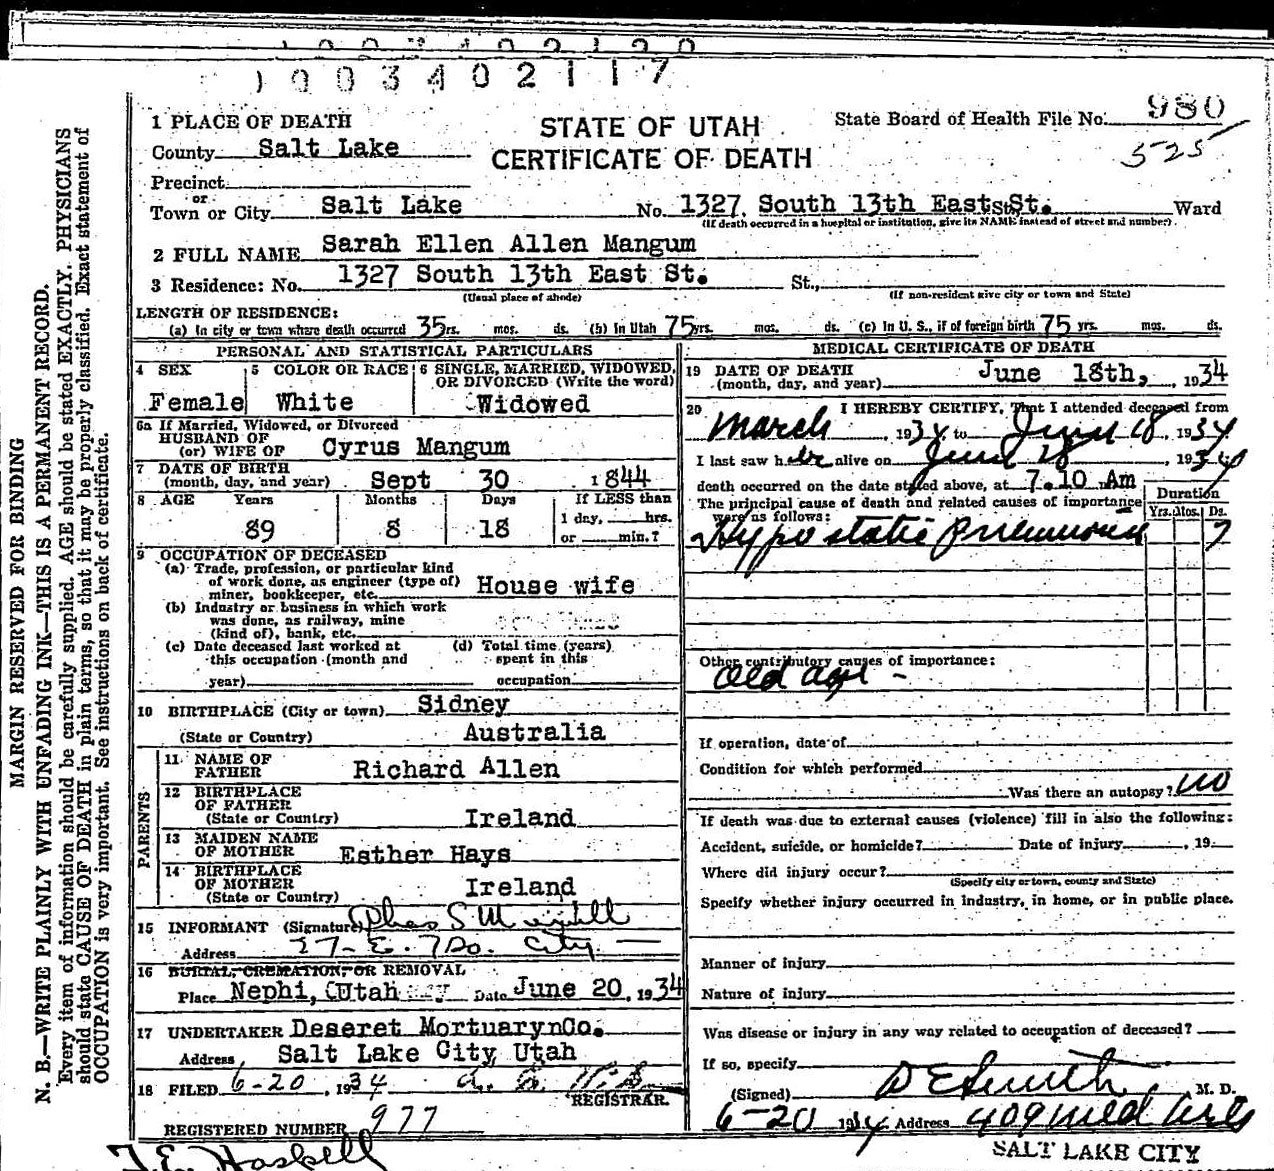 1003402120
1003402117
1 PLACE OF DEATH
STATE OF UTAH
CERTIFICATE OF DEATH
State Board of Health File No. 980
525
County Salt Lake
Precinct
or
Town or City Salt Lake No. 1327 South 13th East St. Ward
(If death occurred in a hospital or institution, give its NAME instead of street and number)
2 FULL NAME Sarah Ellen Allen Mangum
3 Residence: No. 1327 South 13th East St. St.,
(Usual place of abode) (If non-resident give city or town and State)
LENGTH OF RESIDENCE:
(a) In city or town where death occurred 35 yrs. mos. ds. (b) In Utah 75 yrs. mos. ds. (c) In U. S., if of foreign birth 75 yrs. mos. ds.
PERSONAL AND STATISTICAL PARTICULARS
4 SEX
Female
5 COLOR OR RACE
White
6 SINGLE, MARRIED, WIDOWED,
OR DIVORCED (Write the word)
Widowed
6a If Married, Widowed, or Divorced
HUSBAND OF
(or) WIFE OF Cyrus Mangum
7 DATE OF BIRTH
(month, day, and year) Sept 30 1844
8 AGE Years Months Days If LESS than
89 8 18 1 day, hrs.
or min.?
9 OCCUPATION OF DECEASED
(a) Trade, profession, or particular kind
of work done, as engineer (type of)
miner, bookkeeper, etc. House wife
(b) Industry or business in which work
was done, as railway, mine
(kind of), bank, etc.
(c) Date deceased last worked at
this occupation (month and
year)
(d) Total time (years)
spent in this
occupation
10 BIRTHPLACE (City or town) Sidney
(State or Country) Australia
PARENTS
11 NAME OF
FATHER Richard Allen
12 BIRTHPLACE
OF FATHER
(State or Country) Ireland
13 MAIDEN NAME
OF MOTHER Esther Hays
14 BIRTHPLACE
OF MOTHER
(State or Country) Ireland
15 INFORMANT (Signature)
Address 27-E. 7 So. City
16 BURIAL, CREMATION, OR REMOVAL
Place Nephi, Utah Date June 20, 1934
17 UNDERTAKER Deseret Mortuary Co.
Address Salt Lake City Utah
18 FILED 6-20, 1934
REGISTRAR.
REGISTERED NUMBER 977
J.E. Haskell
MEDICAL CERTIFICATE OF DEATH
19 DATE OF DEATH
(month, day, and year) June 18th, 1934
20 I HEREBY CERTIFY, That I attended deceased from
March, 1934, to June 18, 1934
I last saw her alive on June 18, 1934
death occurred on the date stated above, at 7.10 Am
The principal cause of death and related causes of importance
were as follows:
Duration
Yrs. Mos. Ds.
Hypostatic Pneumonia 7
Other contributory causes of importance:
Old age -
If operation, date of
Condition for which performed
Was there an autopsy? no
If death was due to external causes (violence) fill in also the following:
Accident, suicide, or homicide? Date of injury , 19
Where did injury occur?
(Specify city or town, county and State)
Specify whether injury occurred in industry, in home, or in public place.
Manner of injury
Nature of injury
Was disease or injury in any way related to occupation of deceased?
If so, specify
(Signed) D E Smith, M. D.
6-20 1934 Address 409 Med Arts
SALT LAKE CITY
MARGIN RESERVED FOR BINDING
N. B.—WRITE PLAINLY WITH UNFADING INK—THIS IS A PERMANENT RECORD.
Every item of information should be carefully supplied. AGE should be stated EXACTLY. PHYSICIANS
should state CAUSE OF DEATH in plain terms, so that it may be properly classified. Exact statement of
OCCUPATION is very important. See instructions on back of certificate.